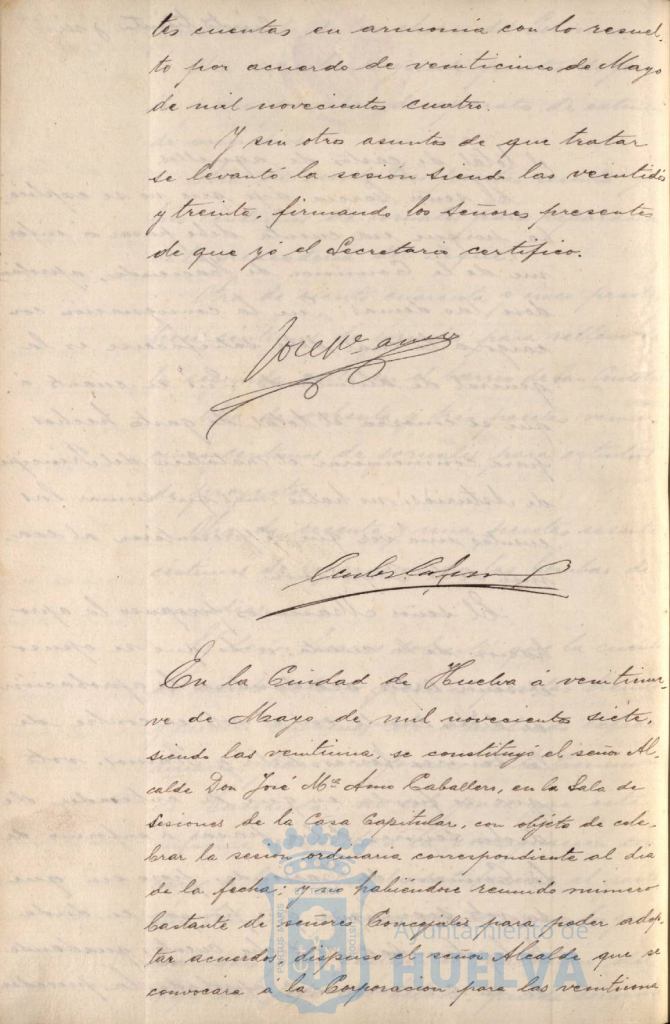 tes cuentas en armonía con lo resuel-
to por acuerdo de veinticinco de Mayo
de mil novecientos cuatro.
Y sin otros asuntos de que tratar
se levantó la sesion siendo las veintidos
y treinta, firmando los señores presentes
de que yó el Secretario certifico.
José Mª Amo
En la Ciudad de Huelva á veintinue-
ve de Mayo de mil novecientos siete,
siendo las veintiuna, se constituyó el señor Al-
calde Don José Mª Amo Caballero, en la Sala de
Sesiones de la Casa Capitular, con objeto de cele-
brar la sesion ordinaria correspondiente al dia
de la fecha; y no habiéndose reunido número
bastante de señores Concejales para poder adop-
tar acuerdos, dispuso el señor Alcalde que se
convocara a la Corporacion para las veintiuna
Ayuntamiento de
HUELVA
PORTUS MARIS